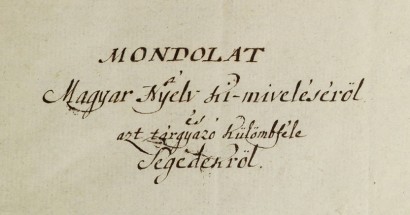 MONDOLAT
a
Magyar Nyelv ki-miveléséröl
és
azt tárgyazó külömbféle
Segedekröl.